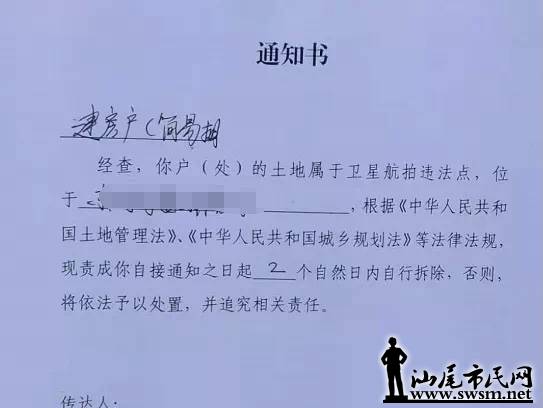 通知书
建房户(简易棚
经查，你户（处）的土地属于卫星航拍违法点，位
于，根据《中华人民共和
国土地管理法》、《中华人民共和国城乡规划法》等法律法规，
现责成你自接通知之日起 2 个自然日内自行拆除，否则，
将依法予以处置，并追究相关责任。
传达人：
汕尾市民网
www.swsm.net